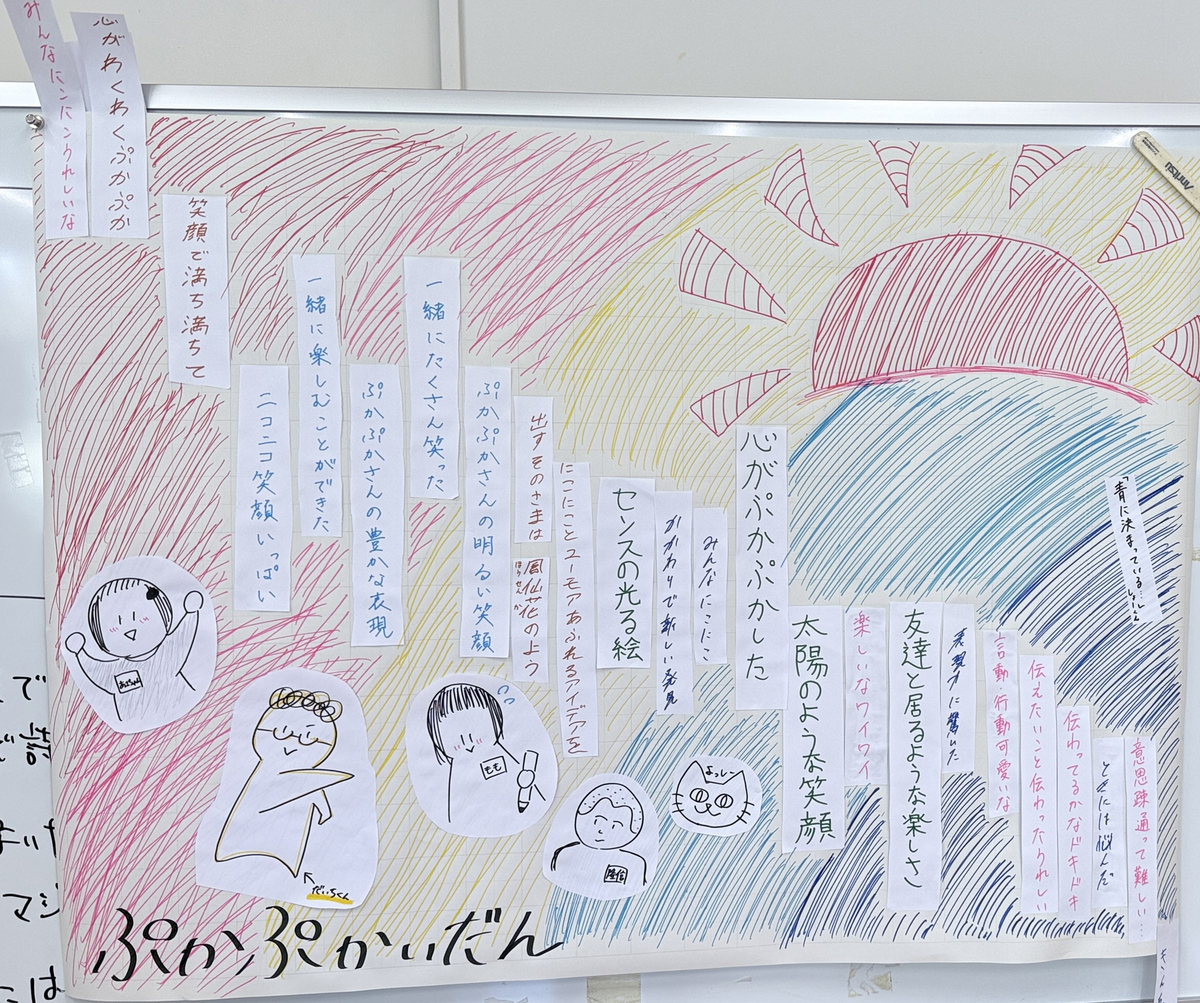 意思疎通って難しい…
ときには悩んだ
伝わってるかなドキドキ
伝えたいこと伝わったうれしい
言動・行動可愛いな
表現力に驚いた
友達と居るような楽しさ
楽しいなワイワイ
太陽のような笑顔
心がぷかぷかした
みんなにこにこ
かかわりで新しい発見
センスの光る絵
にこにことユーモアあふれるアイデアを
出すそのさまは
鳳仙花のよう
ほうせんか
ぷかぷかさんの明るい笑顔
一緒にたくさん笑った
ぷかぷかさんの豊かな表現
一緒に楽しむことができた
ニコニコ笑顔いっぱい
笑顔で満ち満ちて
心がわくわくぷかぷか
みんなにンにンうれしいな
「青に決まっている…
Anritsu
だいちくん
もも
よっしー
ぷかぷかいだん